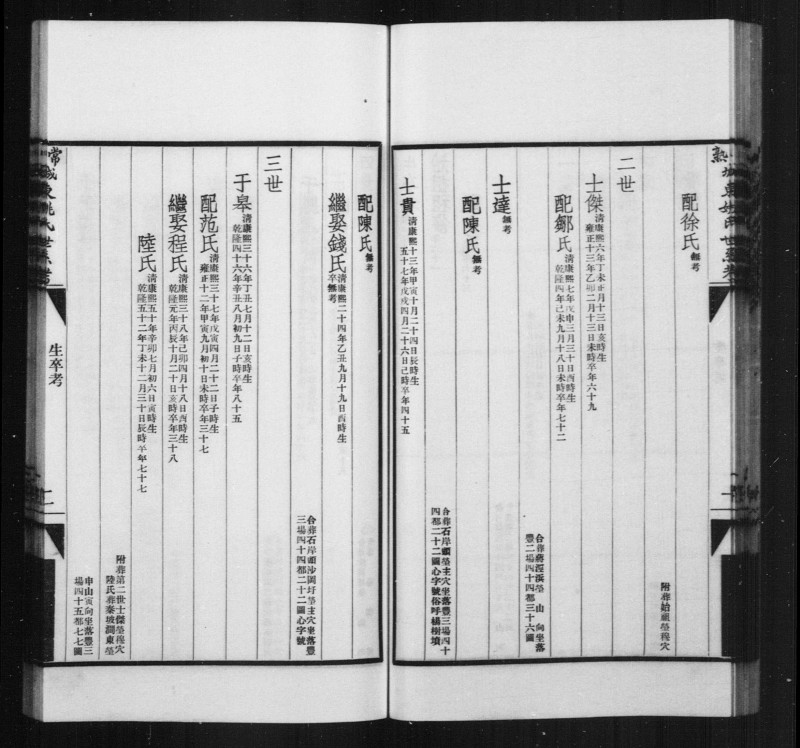 配徐氏無考
附葬始祖塋穆穴
二世
士傑清康熙六年丁未正月十三日亥時生
雍正十三年乙卯二月十三日未時卒年六十九
配鄒氏清康熙七年戊申三月三十日酉時生
乾隆四年己未九月十八日未時卒年七十二
合葬蔣涇浜塋 山 向坐落
豐二場四十四都三十六圖
士達無考
配陳氏無考
士貴清康熙十三年甲寅十月二十四日辰時生
五十七年戊戌四月二十六日己時卒年四十五
合葬石岸頭塋主穴坐落豐三場四十
四都二十二圖心字號俗呼楊樹墳
配陳氏無考
繼娶錢氏清康熙二十四年乙丑九月十九日酉時生
卒無考
合葬石岸頭沙岡圩塋主穴坐落豐
三場四十四都二十二圖心字號
三世
于皋清康熙三十六年丁丑七月十二日亥時生
乾隆四十六年辛丑八月初九日子時卒年八十五
配范氏清康熙三十七年戊寅四月二十二日子時生
雍正十二年甲寅九月初十日未時卒年三十七
繼娶程氏清康熙三十八年己卯四月十八日酉時生
乾隆元年丙辰十月二十日亥時卒年三十八
陸氏清康熙五十年辛卯七月初六日寅時生
乾隆五十二年丁未十二月三十日辰時卒年七十七
附葬第二世士傑塋穆穴
陸氏葬秦坡澗東塋
申山寅向坐落豐三
場四十五都七七圖
生卒考
二